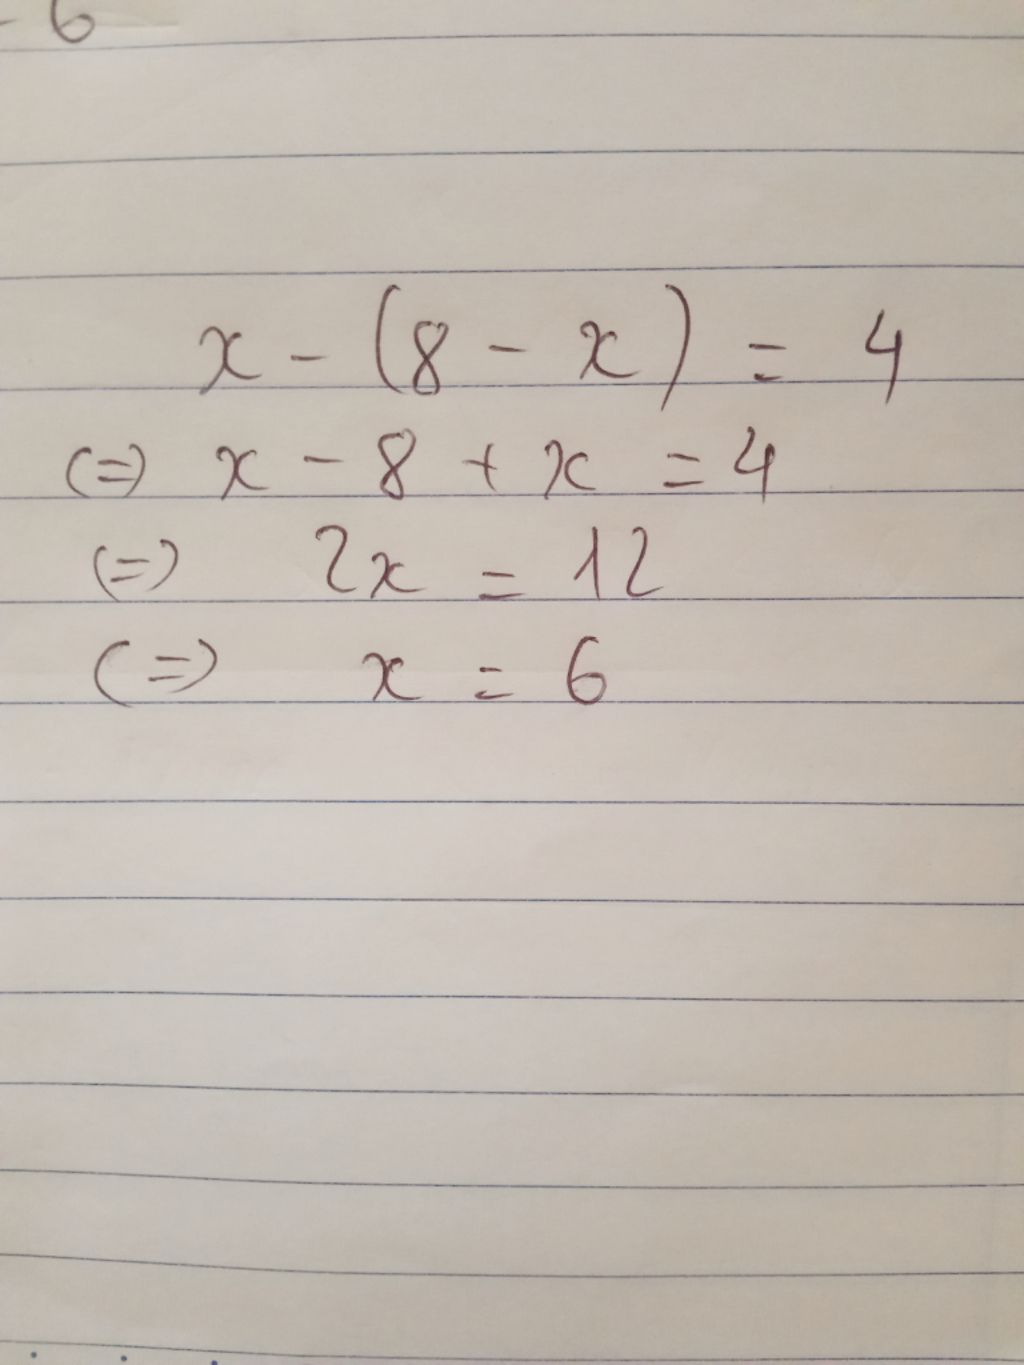 - 6
x - (8 - x) = 4
(=) x - 8 + x = 4
(=) 2x = 12
(=) x = 6